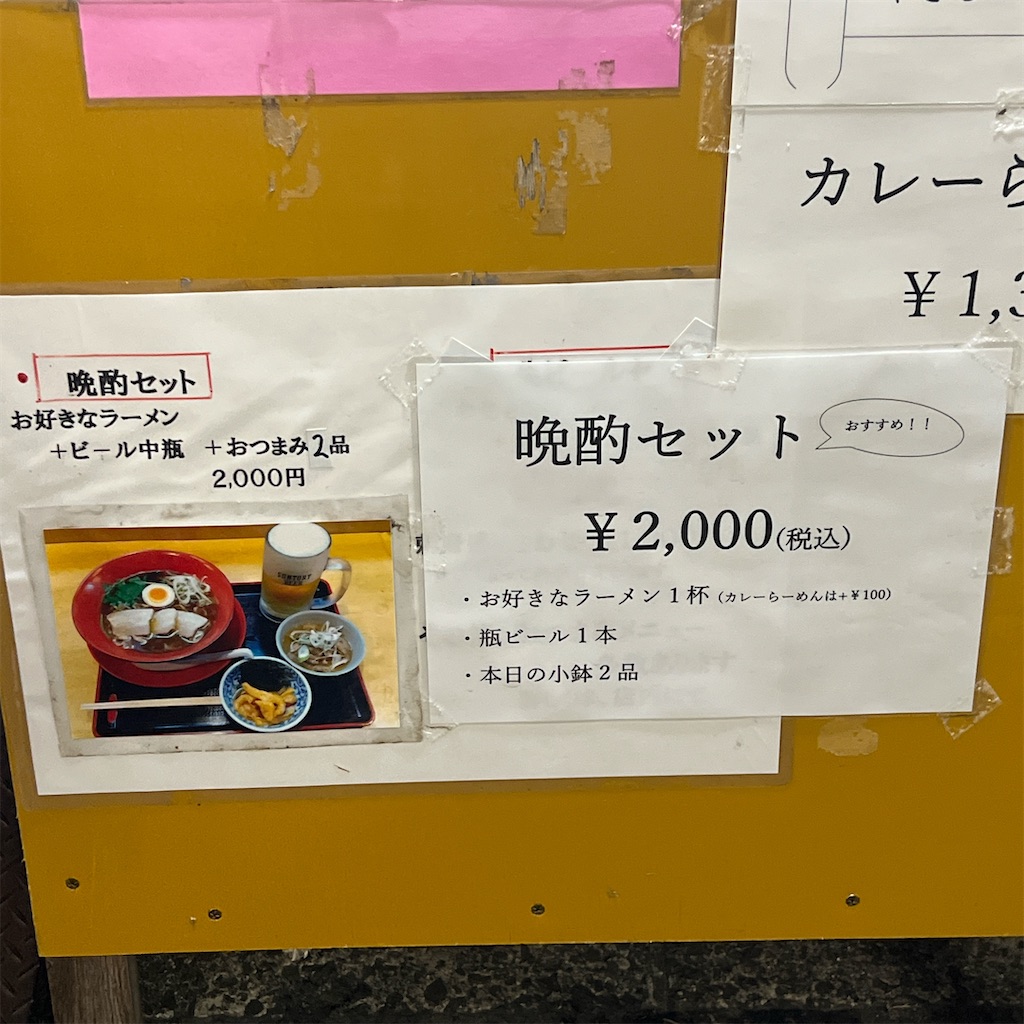 カレーら
¥1,3
・晩酌セット
お好きなラーメン
+ビール中瓶 +おつまみ2品
2,000円
SUNTORY
BEER
晩酌セット
おすすめ！！
¥2,000(税込)
・お好きなラーメン1杯(カレーらーめんは+¥100)
・瓶ビール1本
・本日の小鉢2品